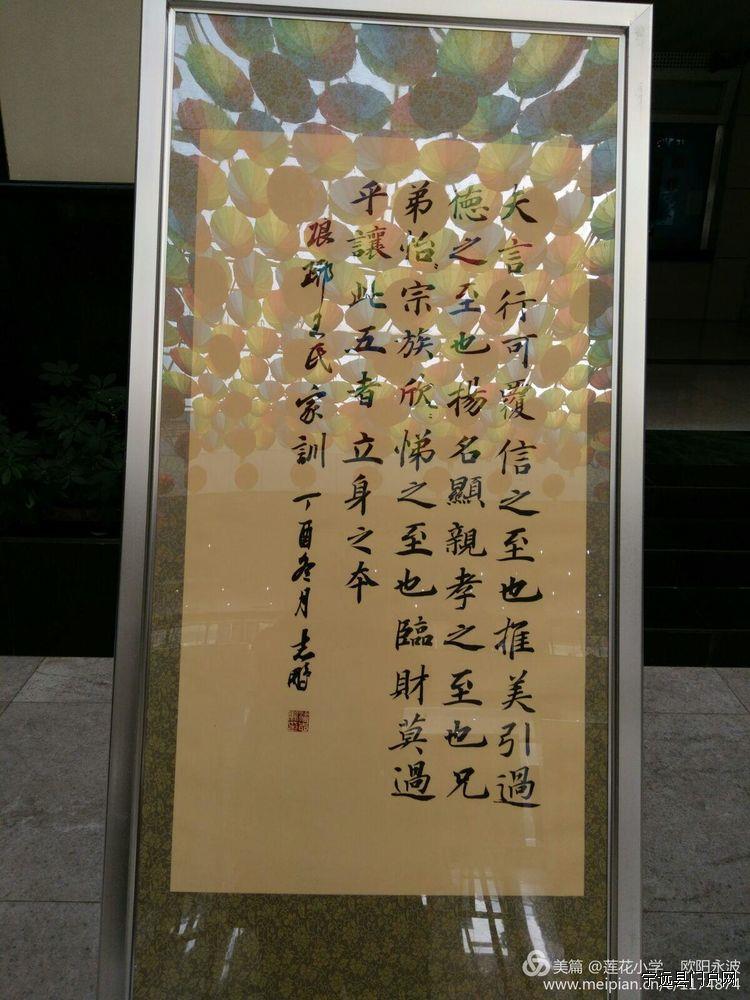 夫言行可覆信之至也推美引過
德之至也揚名顯親孝之至也兄
弟怡怡宗族欣欣悌之至也臨財莫過
乎讓此五者立身之本
琅琊王氏家訓 丁酉冬月 志鵬
美篇 @莲花小学 欧阳永波